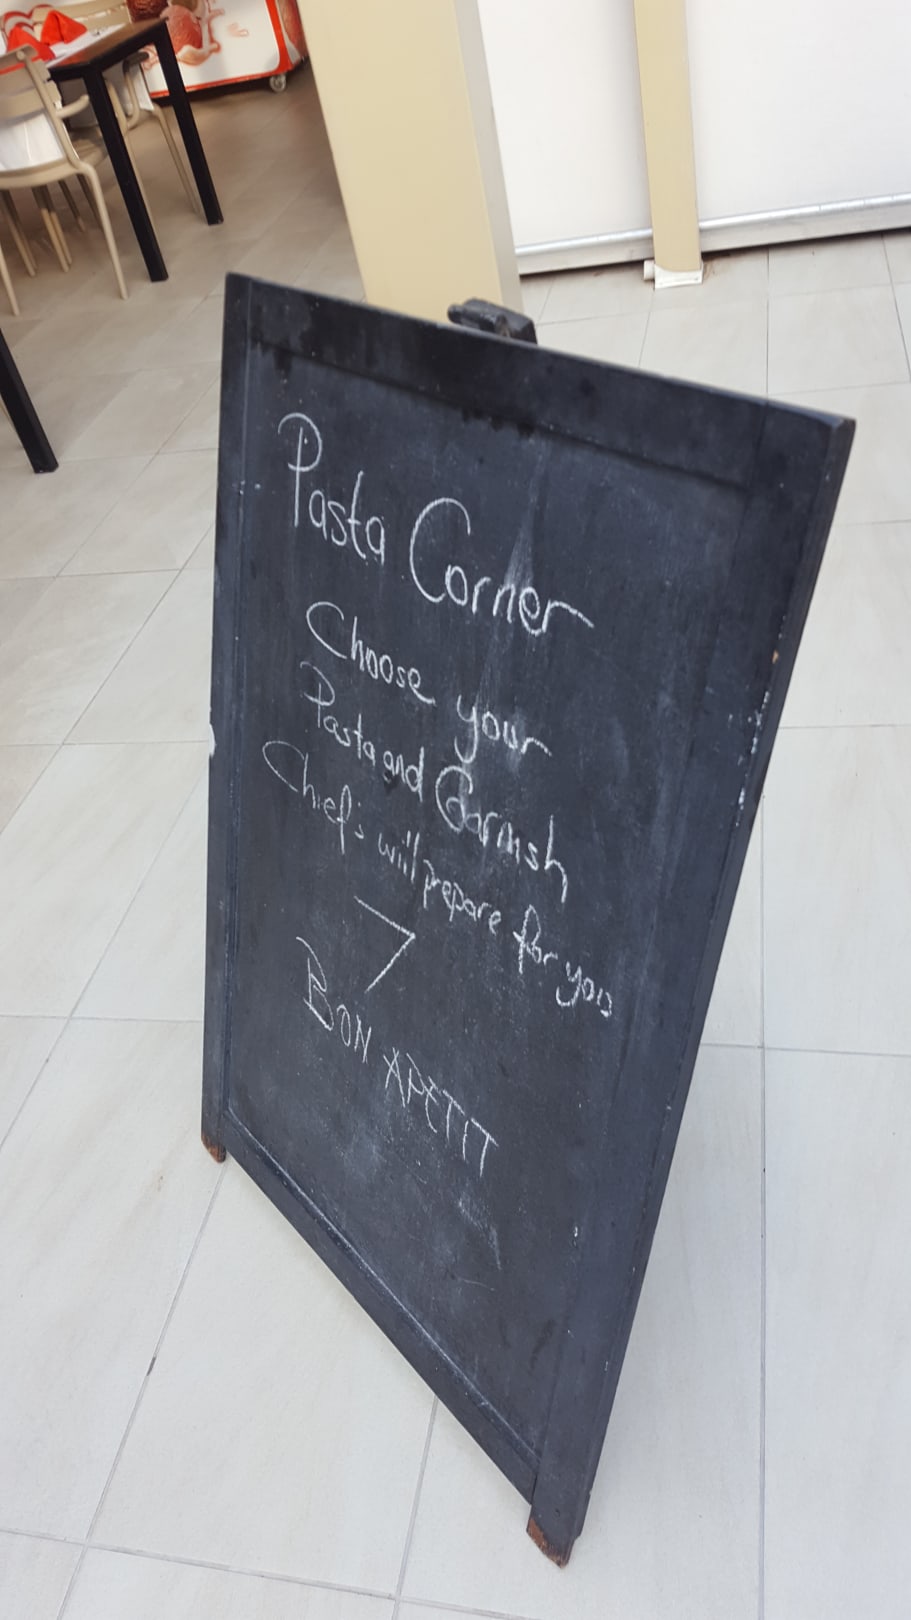 Pasta Corner
Choose your
Pasta and Garnish
Chief's will prepare for you
BON APETIT